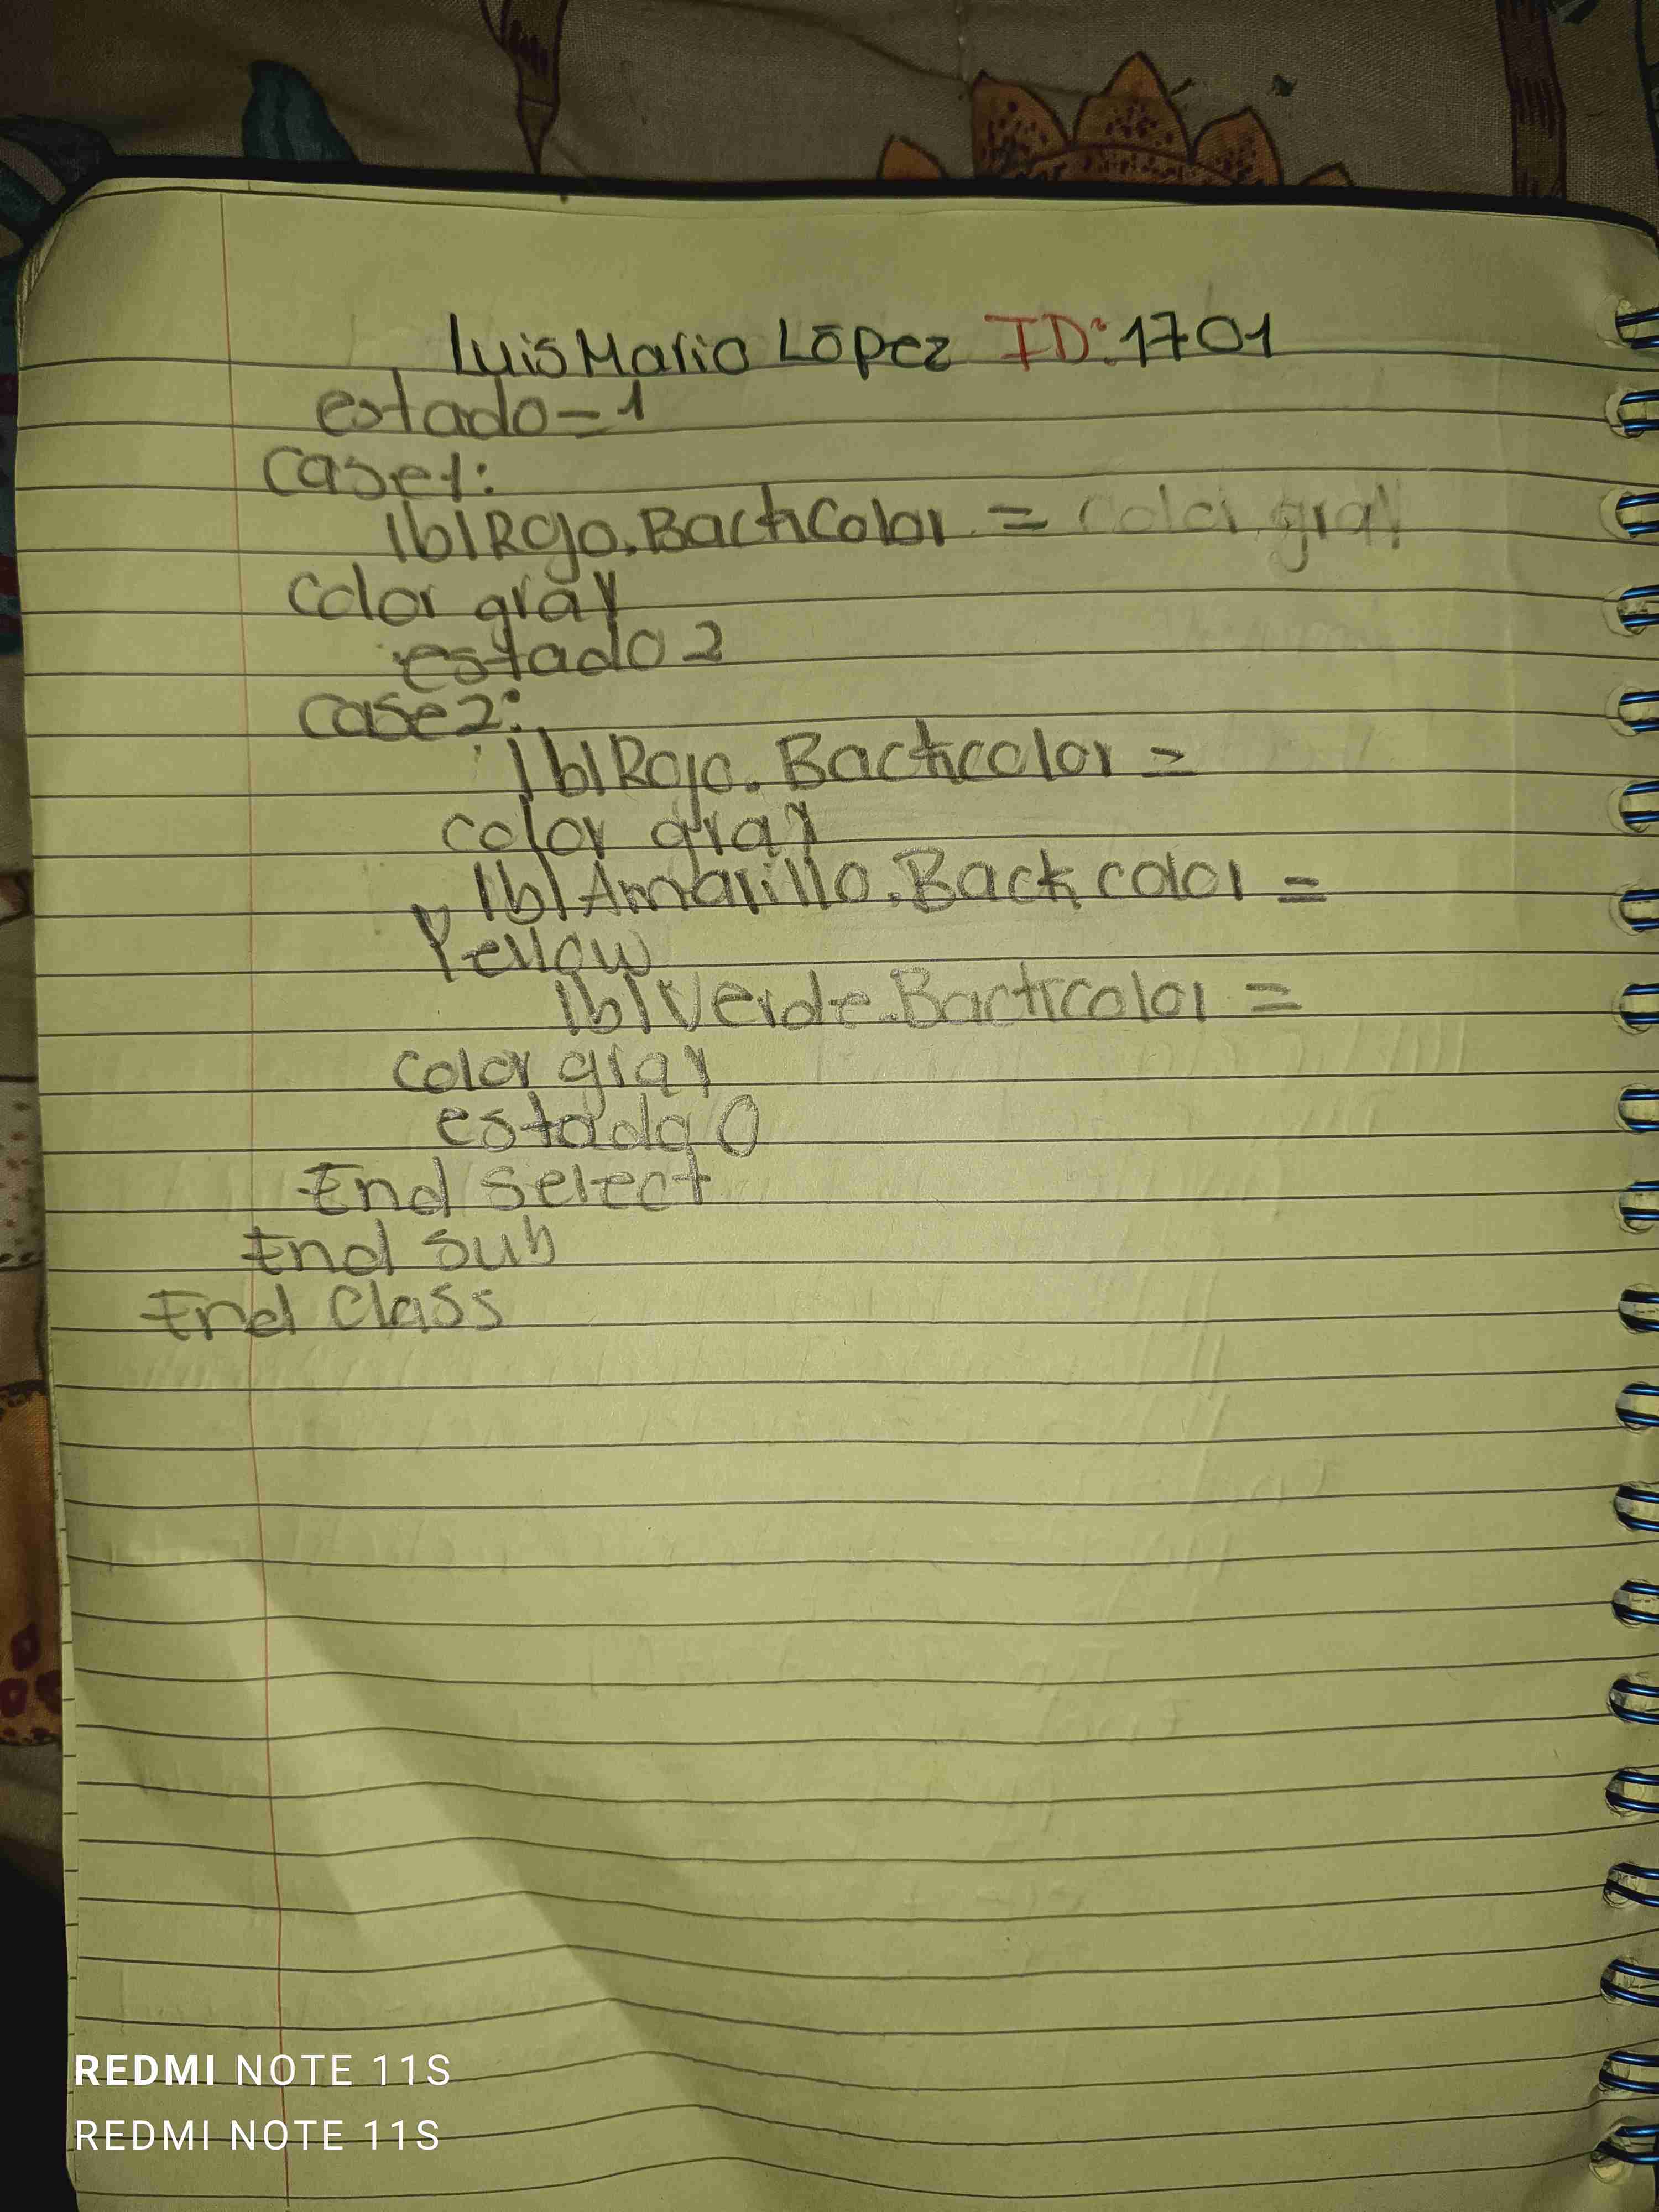 Luis Mario López ID: 1701
estado = 1
case 1:
lblRojo.BackColor = Color gray
Color gray
estado 2
case 2:
lblRojo.Backcolor =
color gray
lblAmarillo.Back color =
Yellow
lblVerde.Backcolor =
color gray
estado 0
End select
End sub
End Class
REDMI NOTE 11S
REDMI NOTE 11S